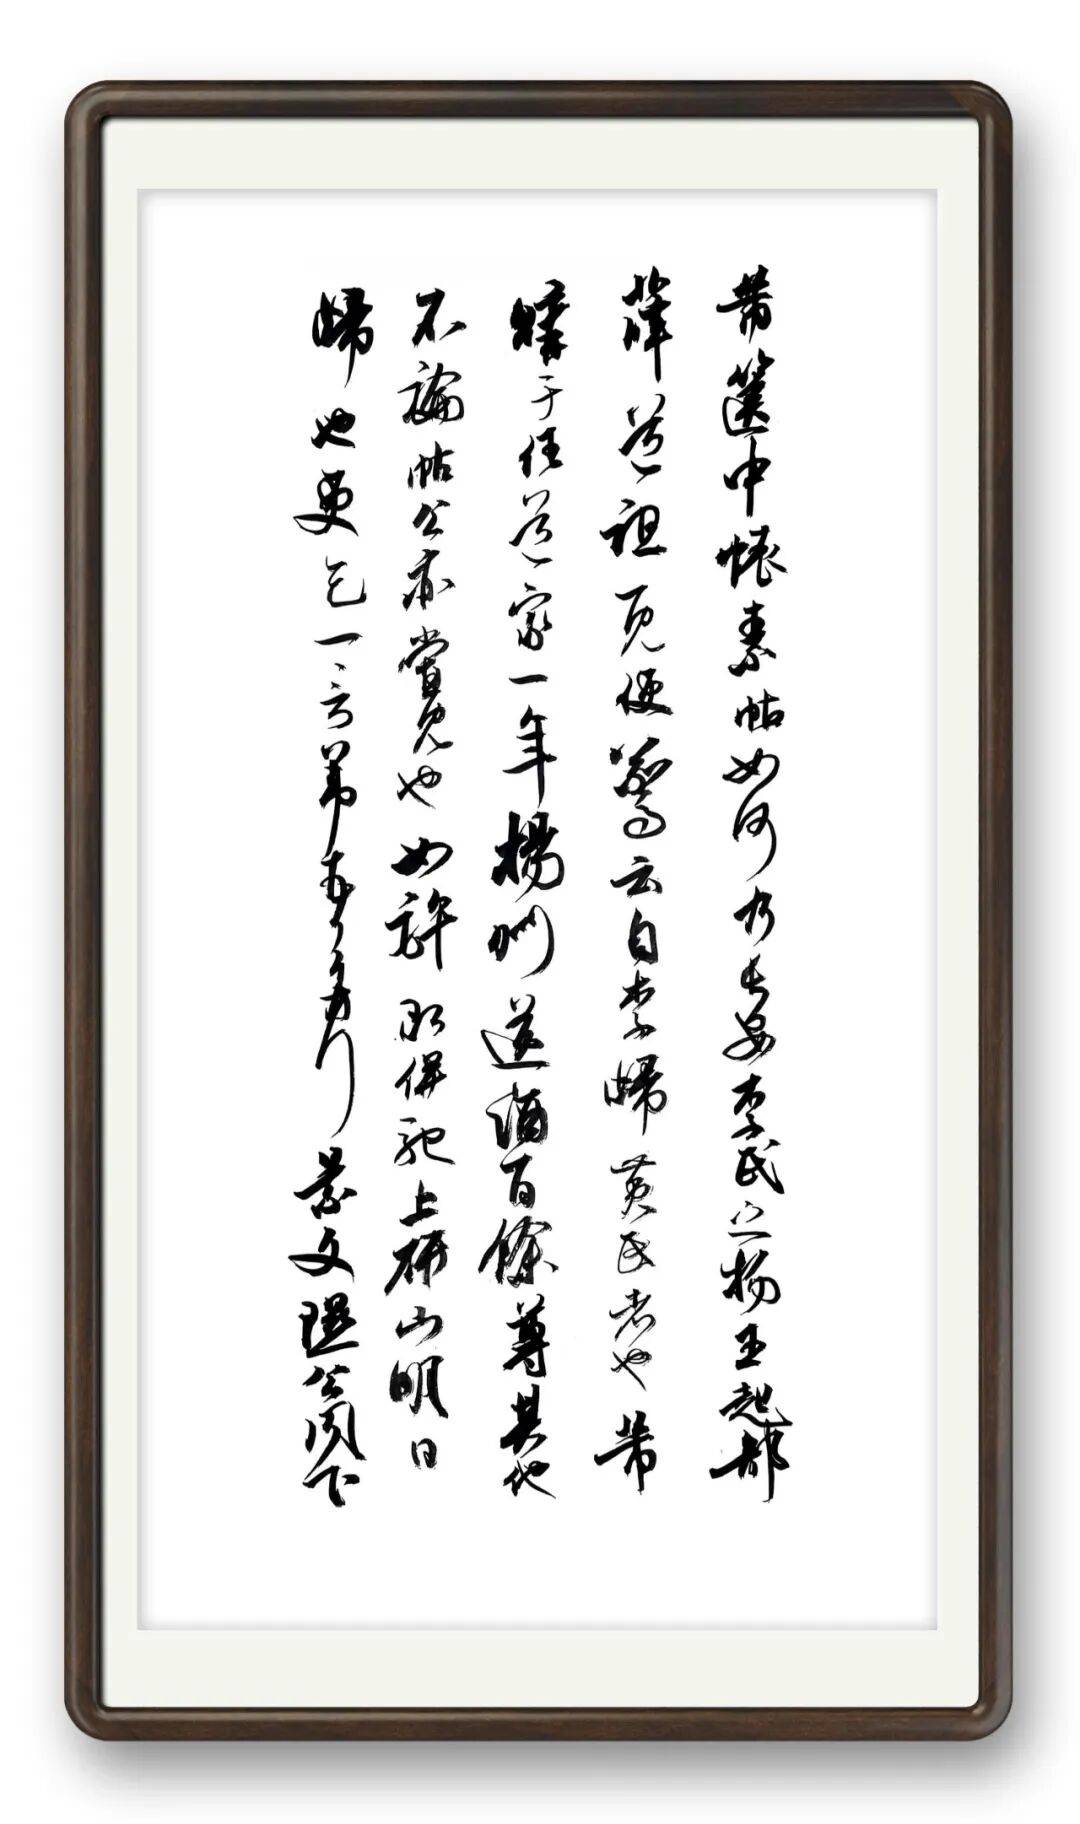 芾篋中懷素帖如何乃長安李氏之物王起部
薛道祖一見便驚云自李歸黃氏者也芾
購于任道家一年楊州送酒百餘尊其他
不論帖公亦嘗見也如許即併馳上研山明日
歸也更乞一言芾頓首再拜景文隰公閤下